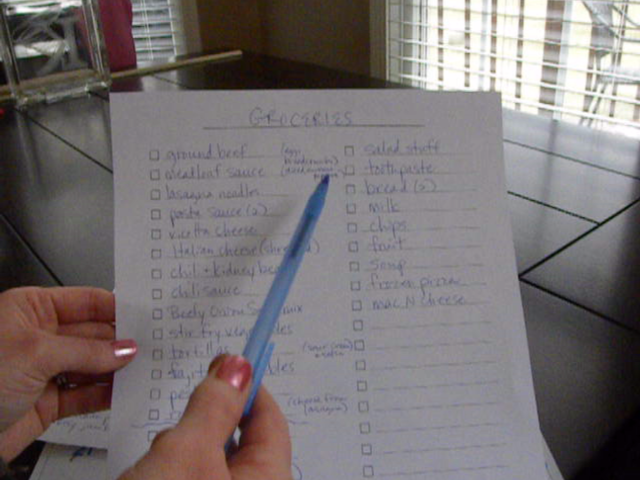 GROCERIES
ground beef
(egg
breadcrumbs)
meatloaf sauce
lasagna noodles
pasta sauce (2)
ricotta cheese
Italian cheese (shr d)
chili + kidney bea
chili sauce
Beefy Onion S mix
stir fry ve les
tortillas
(sour cream
+ salsa)
faj les
pe
(cheese from
lasagna)
salad stuff
toothpaste
bread (2)
milk
chips
fruit
soup
frozen pizza
mac N cheese